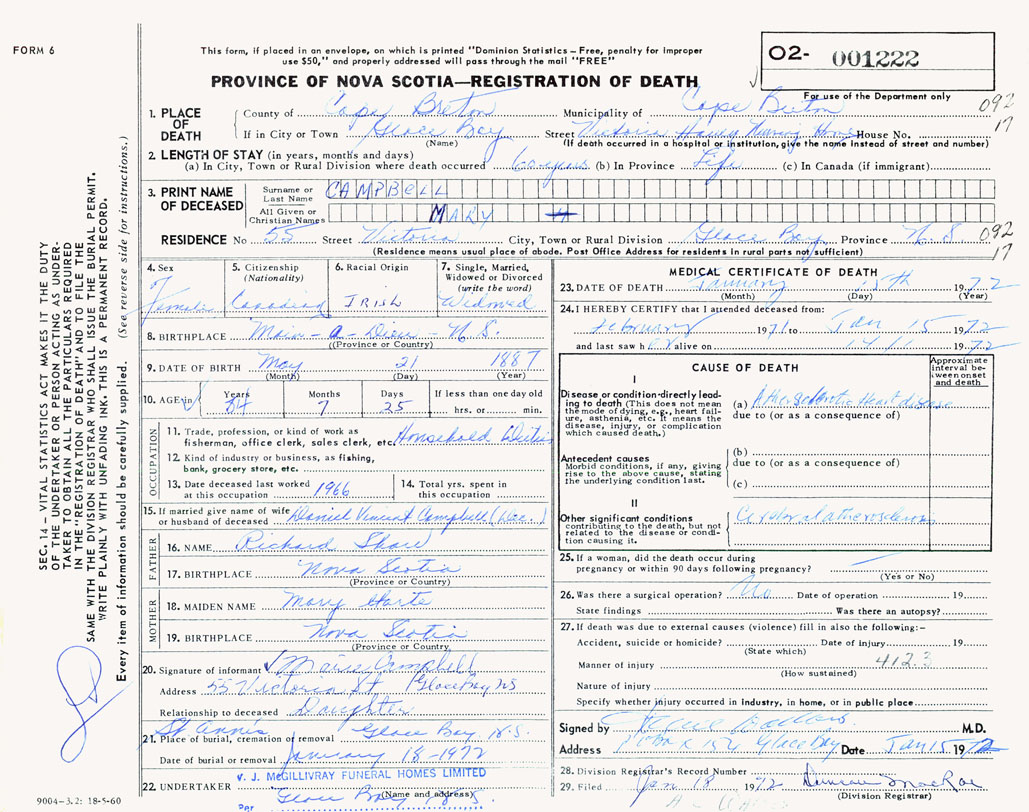 FORM 6
This form, if placed in an envelope, on which is printed "Dominion Statistics – Free, penalty for improper
use $50," and properly addressed will pass through the mail "FREE"
PROVINCE OF NOVA SCOTIA—REGISTRATION OF DEATH
O2- 001222
For use of the Department only
092
17
1. PLACE OF DEATH
County of Cape Breton Municipality of Cape Breton
If in City or Town Glace Bay Street Victoria Haven Nursing Home House No.
(Name) (If death occurred in a hospital or institution, give the name instead of street and number)
2. LENGTH OF STAY (in years, months and days)
(a) In City, Town or Rural Division where death occurred 60 years (b) In Province Life (c) In Canada (if immigrant)
3. PRINT NAME OF DECEASED
Surname or Last Name CAMPBELL
All Given or Christian Names MARY
RESIDENCE No 55 Street Victoria City, Town or Rural Division Glace Bay Province N.S.
092
17
(Residence means usual place of abode. Post Office Address for residents in rural parts not sufficient)
4. Sex Female
5. Citizenship (Nationality) Canadian
6. Racial Origin IRISH
7. Single, Married, Widowed or Divorced (write the word) Widowed
8. BIRTHPLACE Main-a-Dieu - N.S.
(Province or Country)
9. DATE OF BIRTH May 21 1887
(Month) (Day) (Year)
10. AGE in Years 84 Months 7 Days 25 If less than one day old hrs. or min.
OCCUPATION
11. Trade, profession, or kind of work as
fisherman, office clerk, sales clerk, etc. Household Duties
12. Kind of industry or business, as fishing,
bank, grocery store, etc.
13. Date deceased last worked at this occupation 1966
14. Total yrs. spent in this occupation
15. If married give name of wife or husband of deceased Daniel Vincent Campbell (Dec.)
FATHER
16. NAME Richard Shaw
17. BIRTHPLACE Nova Scotia
(Province or Country)
MOTHER
18. MAIDEN NAME Mary Harte
19. BIRTHPLACE Nova Scotia
(Province or Country
20. Signature of informant Marie Campbell
Address 55 Victoria St Glace Bay NS
Relationship to deceased Daughter
St Ann's
21. Place of burial, cremation or removal Glace Bay N.S.
Date of burial or removal January 18-1972
V. J. McGILLIVRAY FUNERAL HOMES LIMITED
22. UNDERTAKER Glace Bay N.S.
(Name and address)
Per
MEDICAL CERTIFICATE OF DEATH
23. DATE OF DEATH January 15th 1972
(Month) (Day) (Year)
24. I HEREBY CERTIFY that I attended deceased from:
February 1971 to Jan 15 1972
and last saw her alive on 1972
CAUSE OF DEATH
Approximate interval between onset and death
I
Disease or condition directly leading to death (This does not mean
the mode of dying, e.g., heart failure, asthenia, etc. It means the
disease, injury, or complication
which caused death.)
(a) Atherosclerotic Heart disease
due to (or as a consequence of)
Antecedent causes
Morbid conditions, if any, giving
rise to the above cause, stating
the underlying condition last.
(b)
due to (or as a consequence of)
(c)
II
Other significant conditions
contributing to the death, but not
related to the disease or condition causing it.
Cerebral atherosclerosis
25. If a woman, did the death occur during
pregnancy or within 90 days following pregnancy?
(Yes or No)
26. Was there a surgical operation? No Date of operation 19
State findings Was there an autopsy?
27. If death was due to external causes (violence) fill in also the following:–
Accident, suicide or homicide? Date of injury 19
(State which)
Manner of injury 412.3
(How sustained)
Nature of injury
Specify whether injury occurred in industry, in home, or in public place
Signed by M.D.
Address Glace Bay Date Jan 15 1972
28. Division Registrar's Record Number
29. Filed Jan 18 1972 Duncan MacRae
(Division Registrar)
SEC. 14 – VITAL STATISTICS ACT MAKES IT THE DUTY
OF THE UNDERTAKER OR PERSON ACTING AS UNDERTAKER TO OBTAIN ALL THE PARTICULARS REQUIRED
IN THE "REGISTRATION OF DEATH" AND TO FILE THE
SAME WITH THE DIVISION REGISTRAR WHO SHALL ISSUE THE BURIAL PERMIT.
WRITE PLAINLY WITH UNFADING INK. THIS IS A PERMANENT RECORD.
Every item of information should be carefully supplied. (See reverse side for instructions.)
9004-3.2: 18-5-60